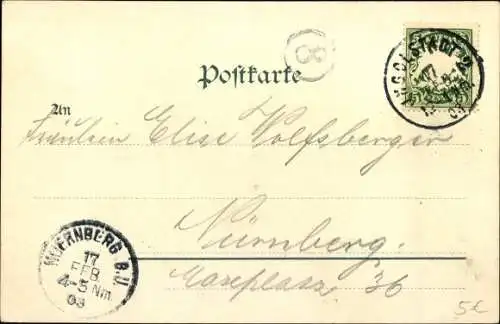 8
INGOLSTADT 2
17
Postkarte
An
Fräulein Elise Wolfsberger
Nürnberg.
Maxplatz 36
NUERNBERG B.U.
17
FEB
4-5 Nm
03
5€